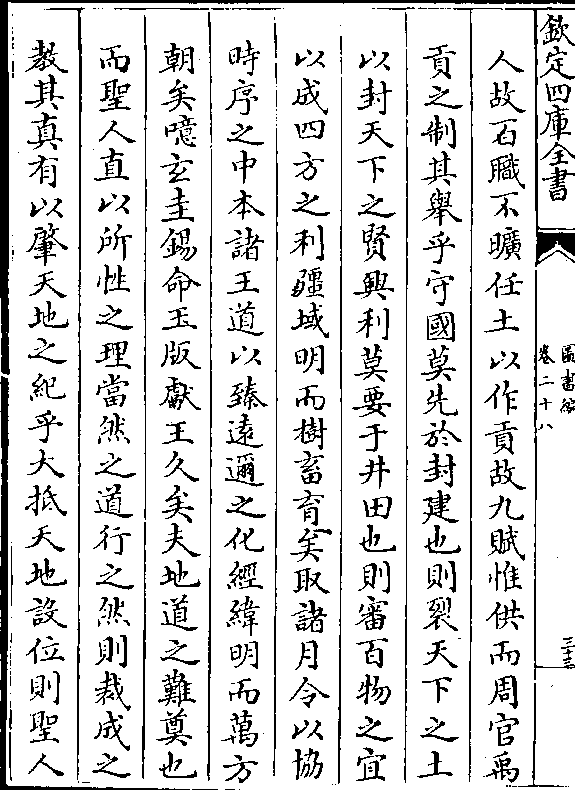 欽定四庫全書
圖書編
卷二十八
三十三
人故百職不曠任土以作貢故九賦惟供而周官禹
貢之制其舉乎守國莫先於封建也則裂天下之土
以封天下之賢興利莫要于井田也則審百物之宜
以成四方之利疆域明而樹畜育矣取諸月令以協
時序之中本諸王道以臻遠邇之化經緯明而萬方
朝矣噫玄圭錫命玉版獻王久矣夫地道之難奠也
而聖人直以所性之理當然之道行之然則裁成之
教其真有以肇天地之紀乎大抵天地設位則聖人